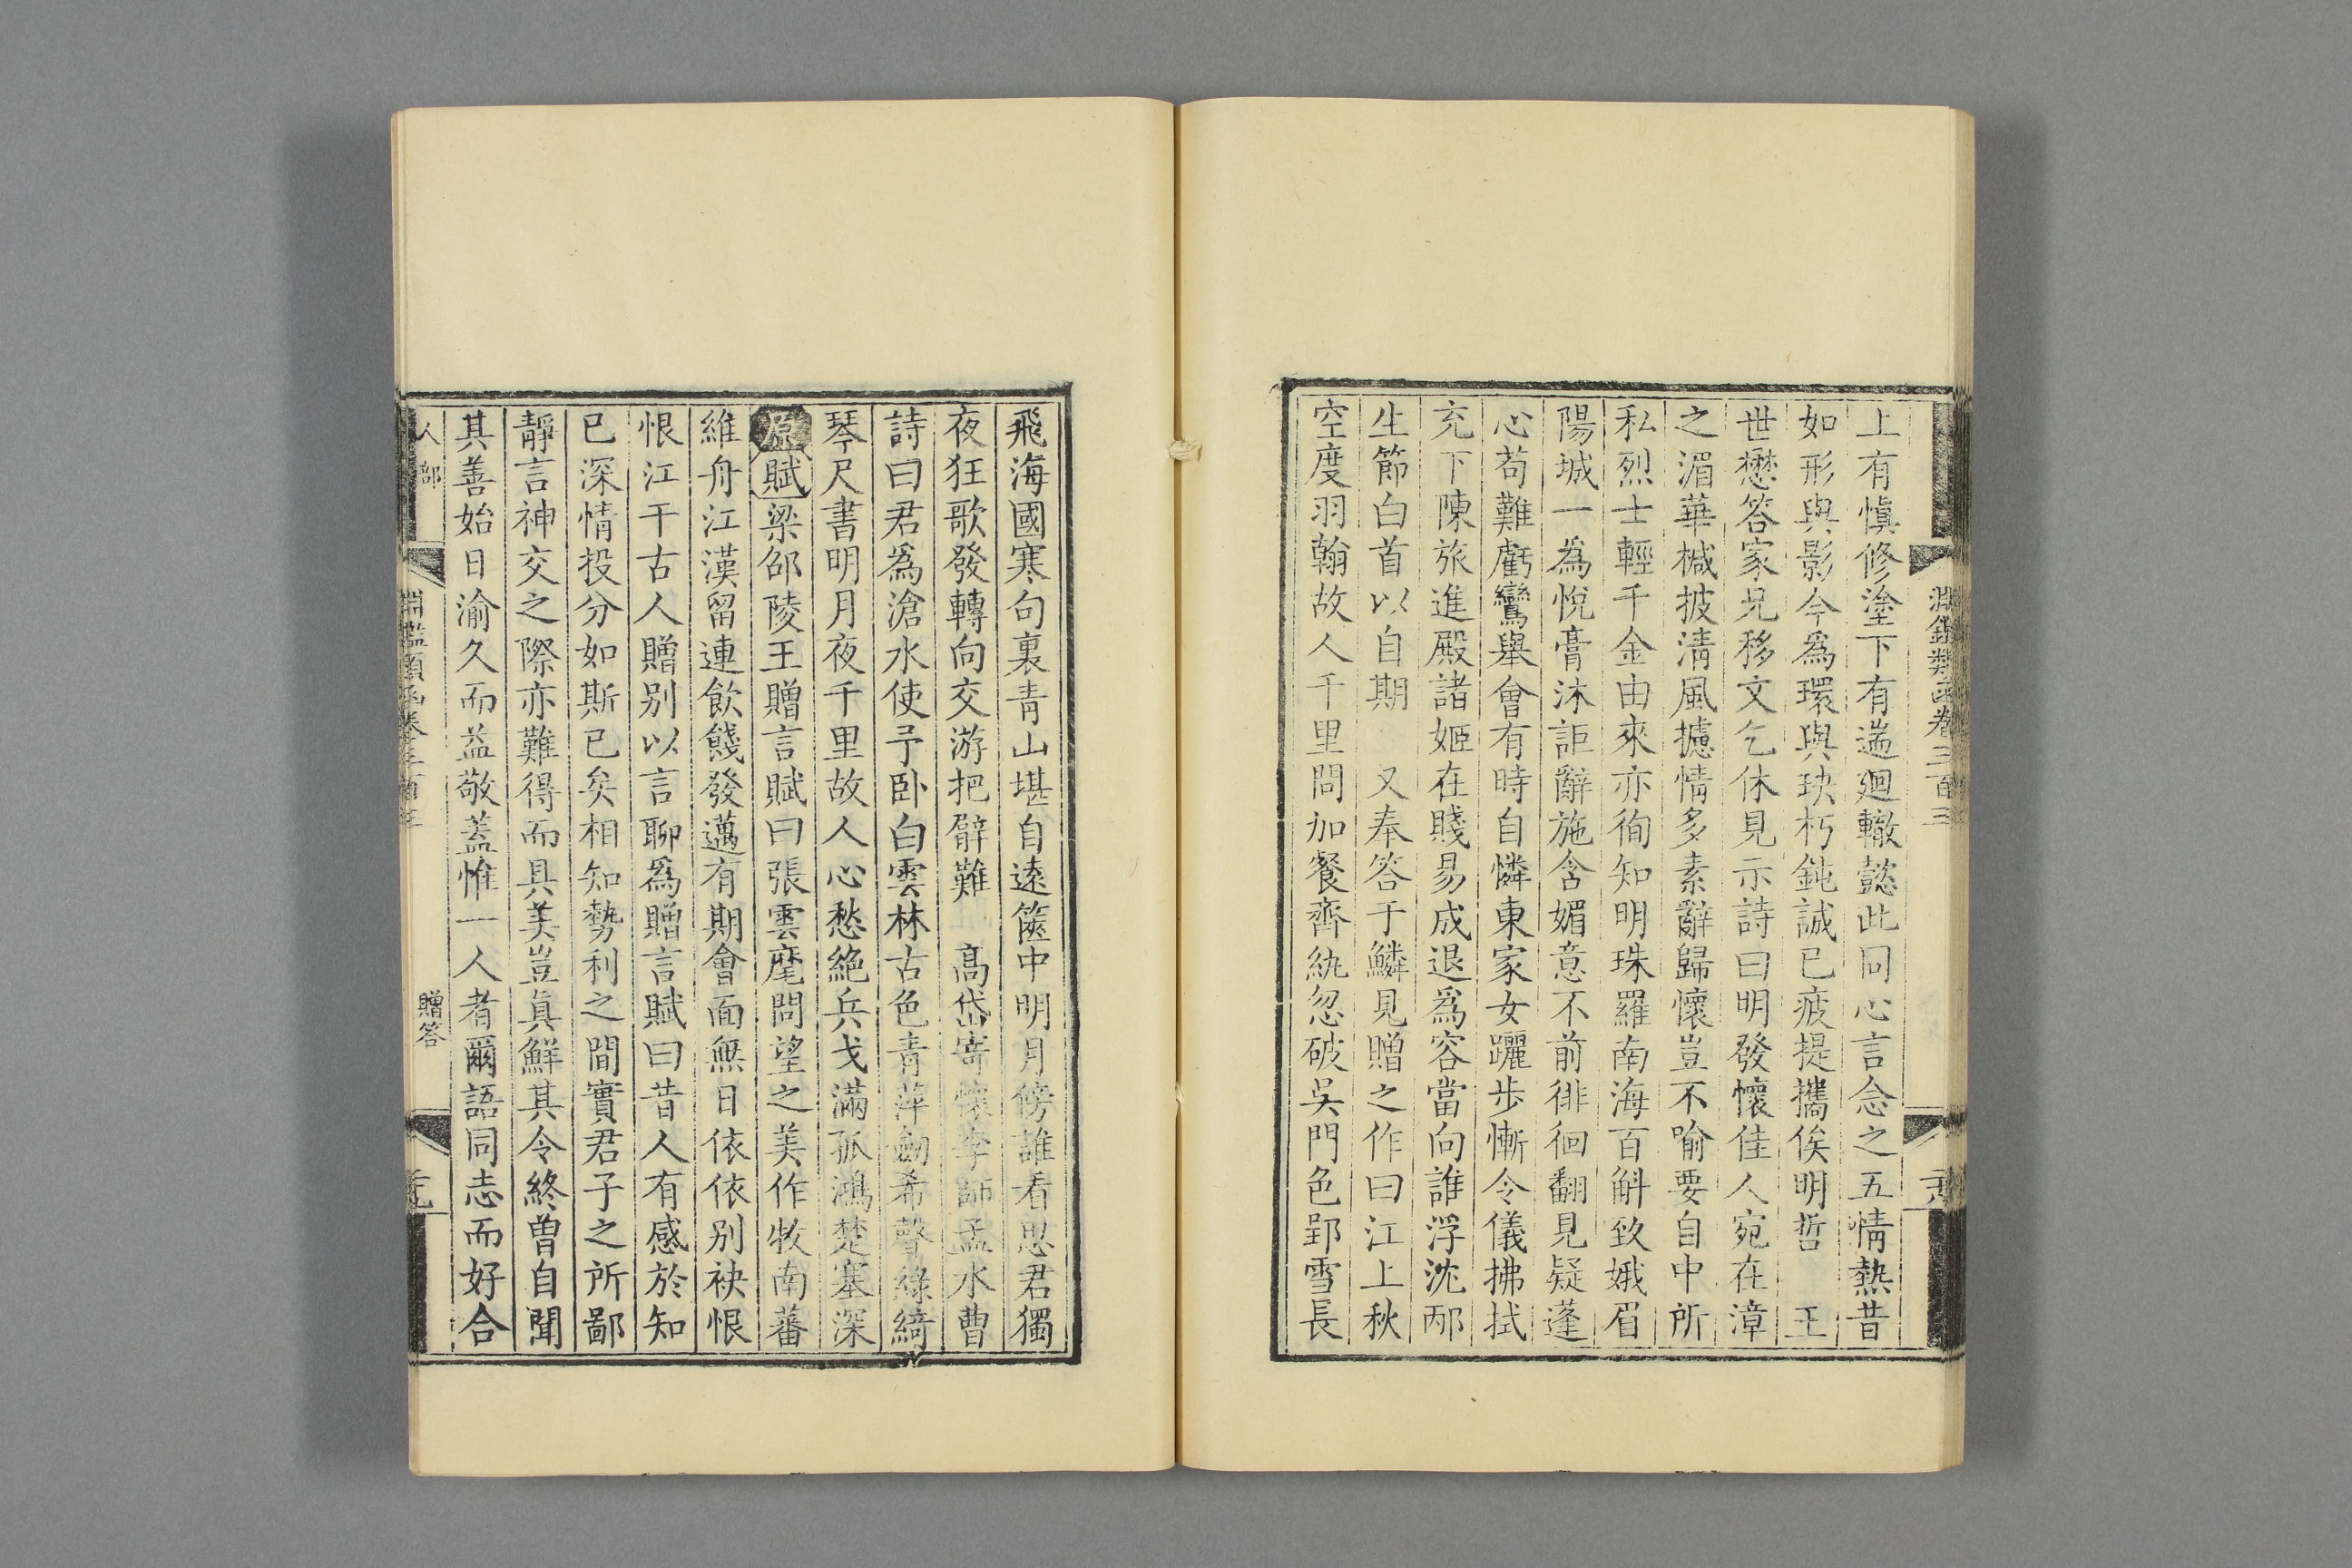 淵鑑類函卷三百三
上有愼修塗下有遄廻轍懿此同心言念之五情熱昔
如形與影今爲環與玦朽鈍誠已疲提攜俟明哲 王
世懋答家兄移文乞休見示詩曰明發懷佳人宛在漳
之湄華椷披淸風攄情多素辭歸懷豈不喻要自中所
私烈士輕千金由來亦徇知明珠羅南海百斛致娥眉
陽城一爲悅膏沐詎辭施含媚意不前徘徊翻見疑蓬
心苟難虧鸞舉會有時自憐東家女躧步慚令儀拂拭
充下陳旅進殿諸姬在賤易成退爲容當向誰浮沈邴
生節白首以自期 又奉答于鱗見贈之作曰江上秋
空度羽翰故人千里問加餐齊紈忽破吳門色郢雪長
飛海國寒句裏靑山堪自遠篋中明月傍誰看思君獨
夜狂歌發轉向交游把臂難 高岱寄懷李師孟水曹
詩曰君爲滄水使予卧白雲林古色靑萍劒希聲綠綺
琴尺書明月夜千里故人心愁絶兵戈滿孤鴻楚塞深
原賦梁邵陵王贈言賦曰張雲麾問望之美作牧南蕃
維舟江漢留連飮餞發邁有期會面無日依依别袂恨
恨江干古人贈别以言聊爲贈言賦曰昔人有感於知
已深情投分如斯已矣相知勢利之間實君子之所鄙
靜言神交之際亦難得而具美豈眞鮮其令終曽自聞
其善始日渝久而益敬蓋惟一人者爾語同志而好合
人部
淵鑑類函卷三百三
贈答